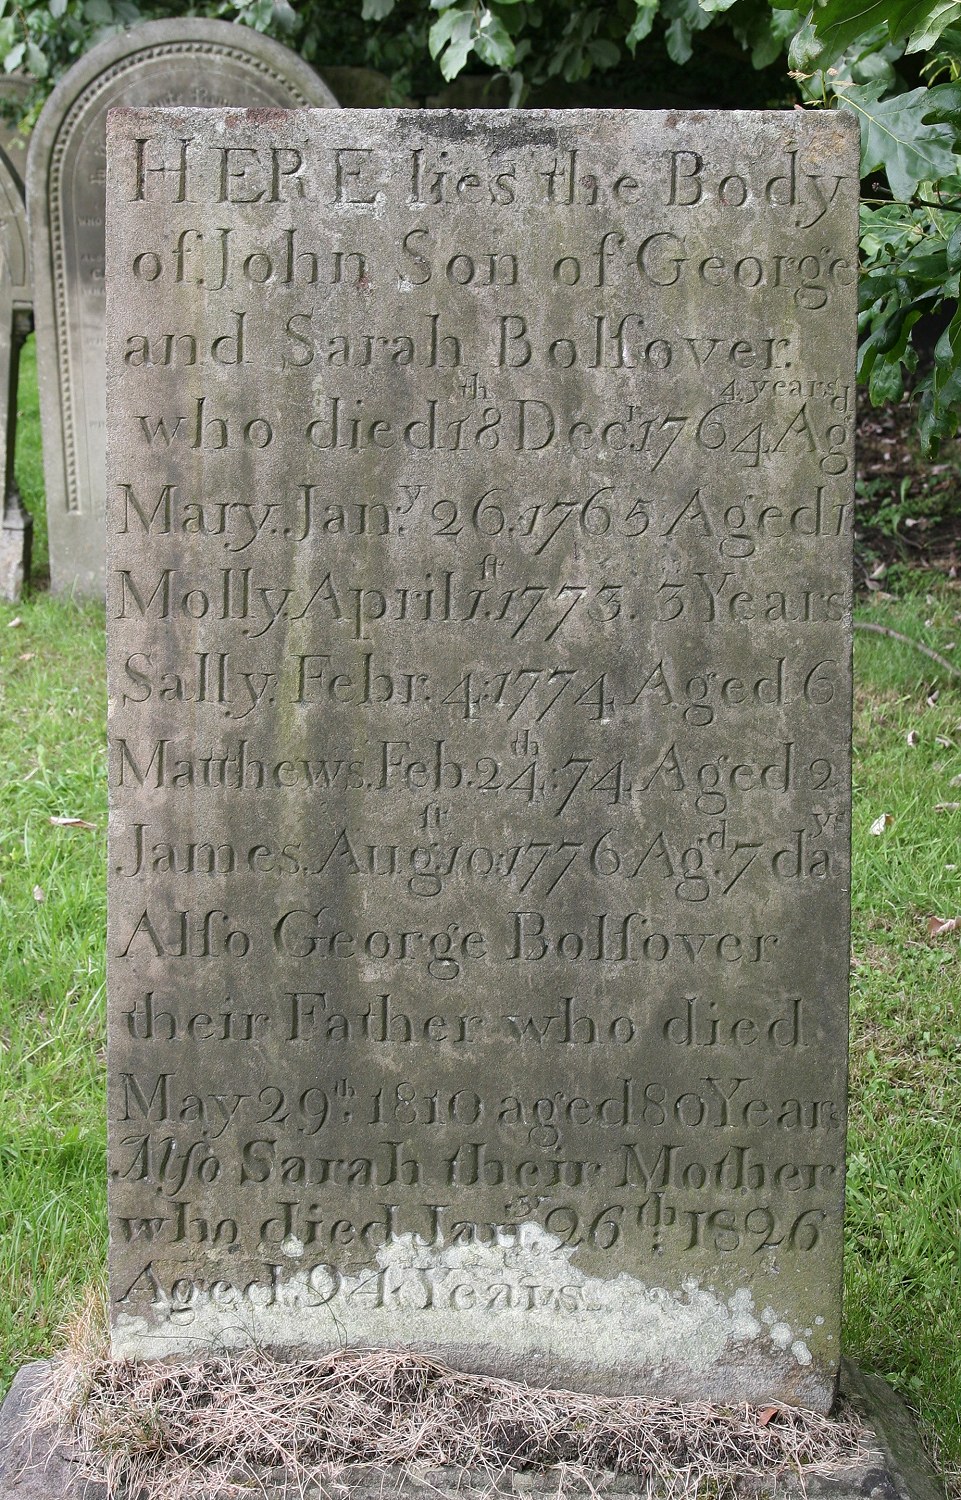 HERE lies the Body
of John Son of George
and Sarah Bolſover.
who died 18th Decr. 1764 Agd 4 years
Mary. Jany. 26. 1765 Aged 1
Molly. April 1ſt. 1773. 3 Years
Sally. Febr. 4: 1774 Aged 6
Matthews. Feb. 24th: 74 Aged 2
James. Aug. 10ſt: 1776 Agd. 7 days
Alſo George Bolſover
their Father who died
May 29th. 1810 aged 80 Years
Alſo Sarah their Mother
who died Jany. 26th 1826
Aged 94 Years.